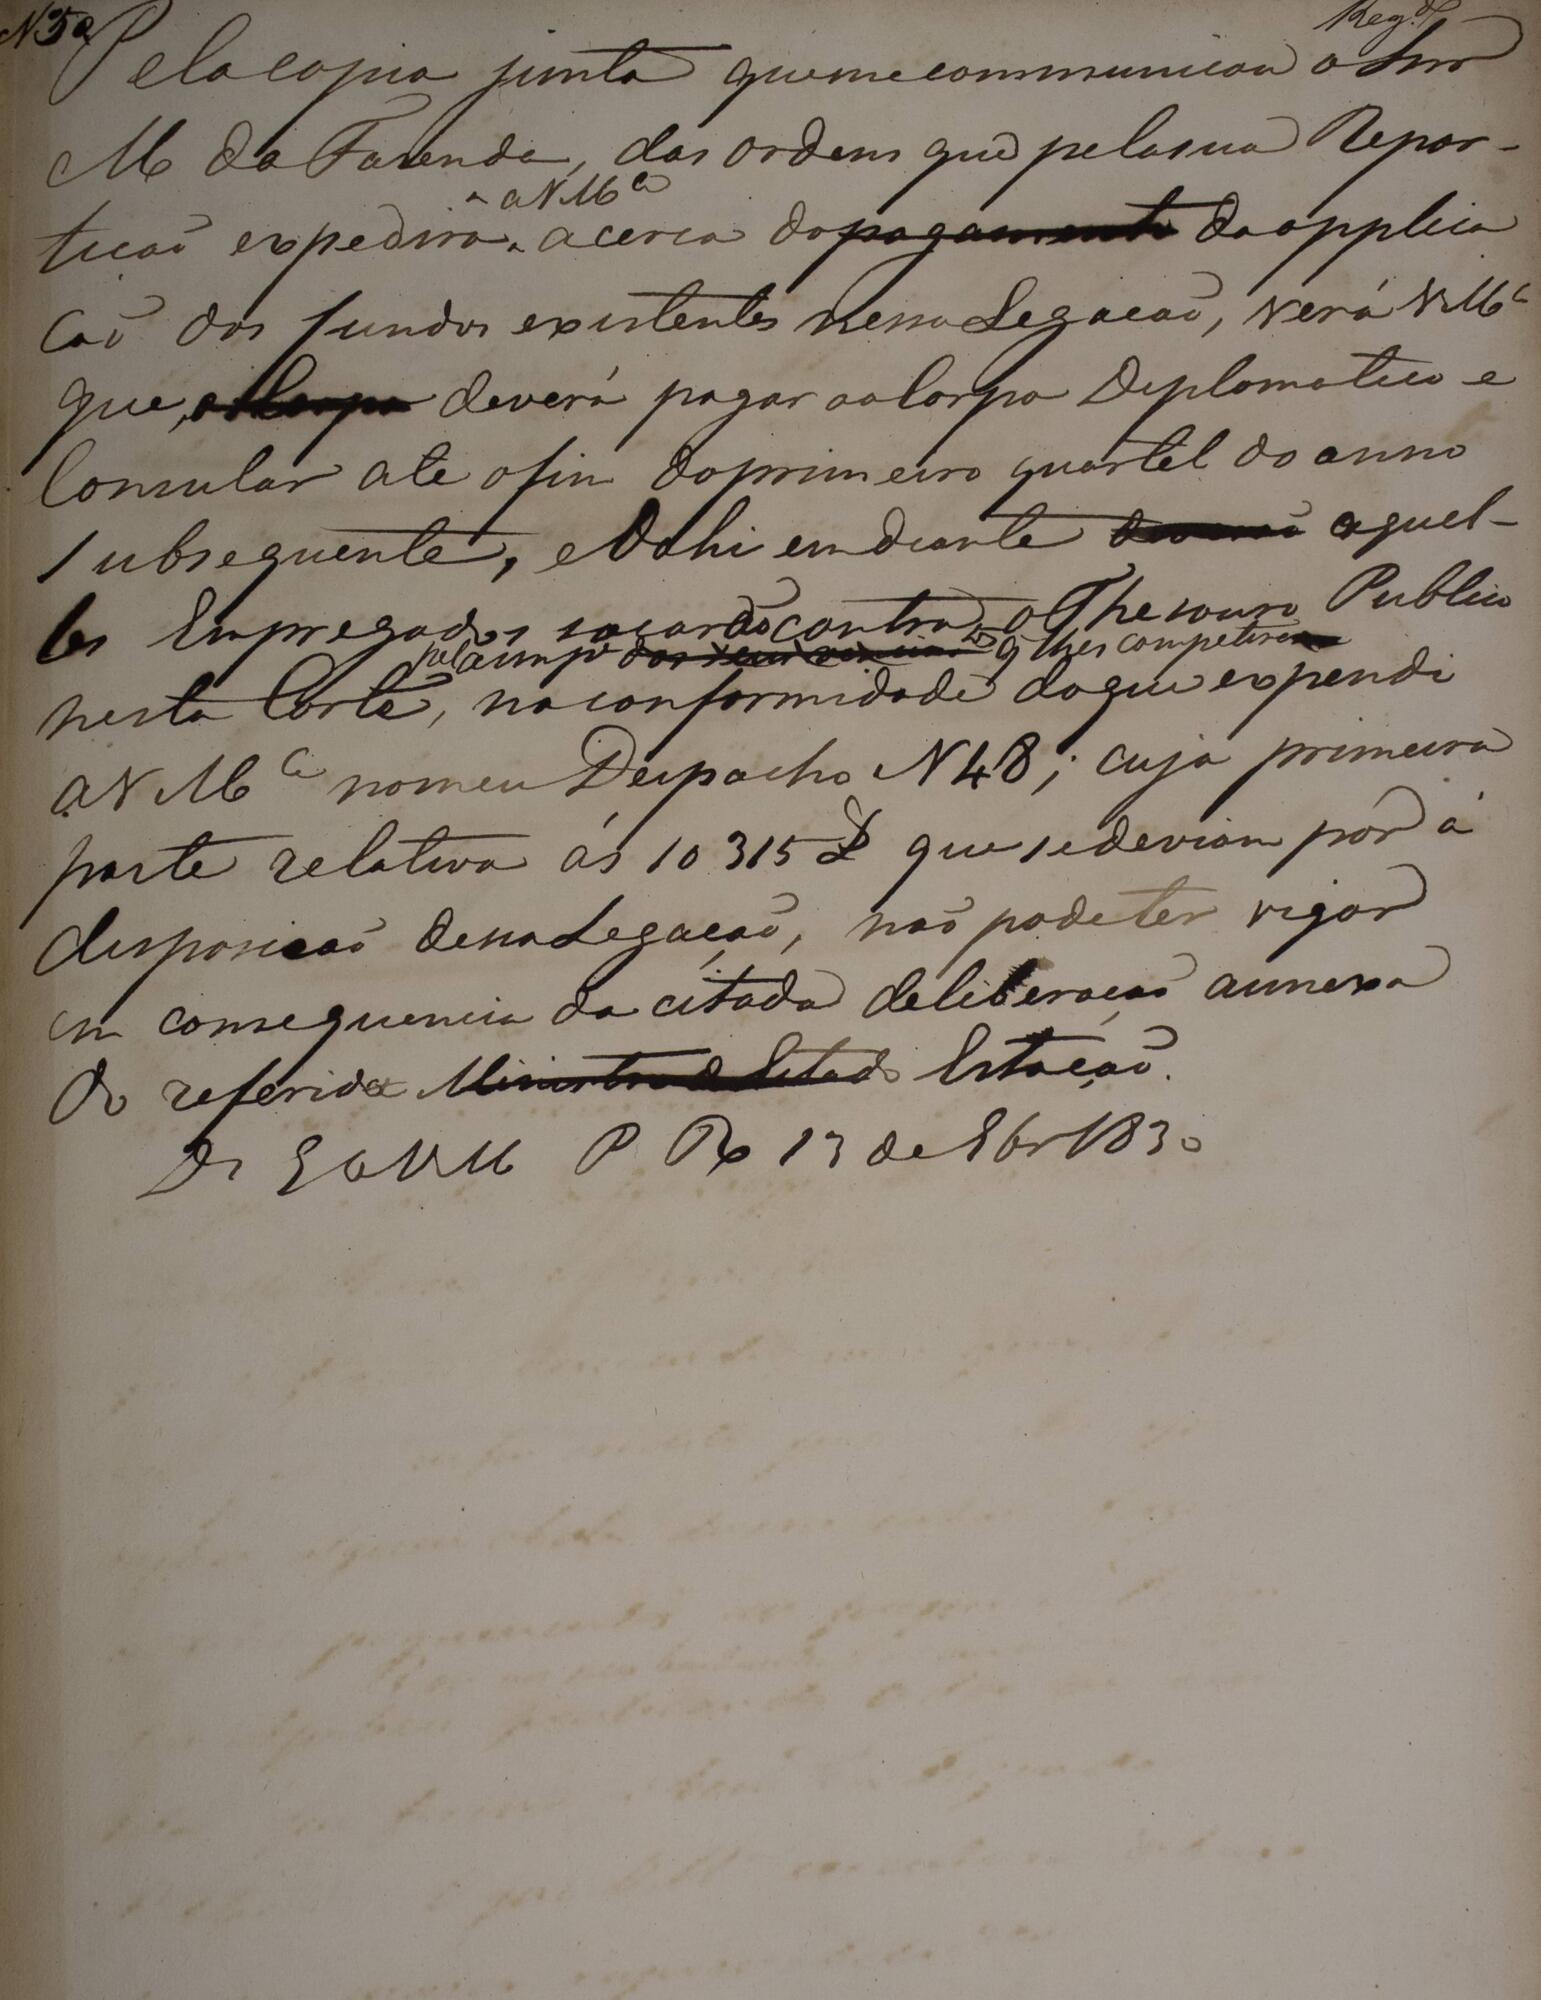 N 50
Reg.do
Pela copia junta que me communicou o Snr
M da Fazenda, das ordens que pela sua Repar-
tição expedira a V Mce acerca do pagamento da applica
ção dos fundos existentes nessa Legação, verá V Mce
que, o Corpo deverá pagar ao Corpo Diplomatico e
Consular ate o fim do primeiro quartel do anno
subsequente, e dahi em diante deverão aquel-
les Empregados sacarão contra o Thesouro Publico
pela imp.e dos seus vencim.tos q lhes competirem
nesta Corte, na conformidade do que expendi
a V Mce no meu Despacho N 48; cuja primeira
parte relativa ás 10 315 £ que se deviam pôr á
disposição dessa Legação, não pode ter vigor
em consequencia da citada deliberação annexa
do referida Ministro d Estado Estação.
Ds G a V M P R 13 de 8br 1830